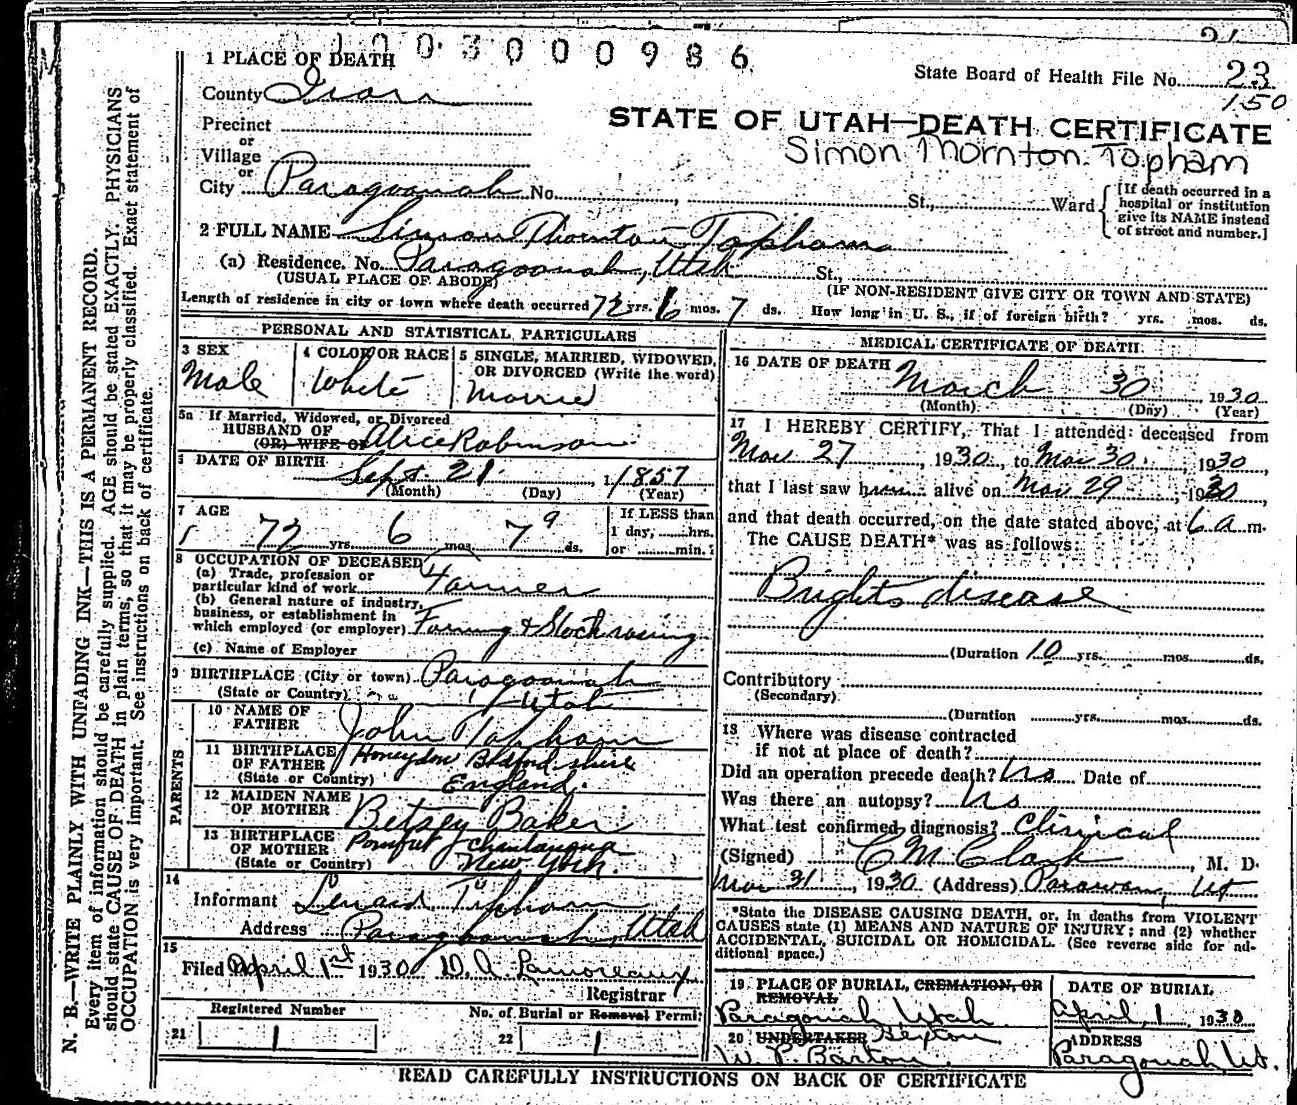 1003000986
1 PLACE OF DEATH
State Board of Health File No. 23
150
County Iron
STATE OF UTAH—DEATH CERTIFICATE
Precinct
or
Simon Thornton Topham
Village
or
City Paragoonah No. St., Ward
[If death occurred in a hospital or institution give its NAME instead of street and number.]
2 FULL NAME Simon Thornton Topham
(a) Residence. No. Paragoonah, Utah St.,
(USUAL PLACE OF ABODE)
(IF NON-RESIDENT GIVE CITY OR TOWN AND STATE)
Length of residence in city or town where death occurred 72 yrs. 6 mos. 7 ds. How long in U. S., if of foreign birth? yrs. mos. ds.
PERSONAL AND STATISTICAL PARTICULARS
3 SEX
Male
4 COLOR OR RACE
White
5 SINGLE, MARRIED, WIDOWED,
OR DIVORCED (Write the word)
Married
5a If Married, Widowed, or Divorced
HUSBAND OF
(OR) WIFE OF Alice Robinson
6 DATE OF BIRTH
Sept 21 1857
(Month) (Day) (Year)
7 AGE
72 yrs. 6 mos. 7 9 ds.
If LESS than
1 day, hrs.
or min.?
8 OCCUPATION OF DECEASED
(a) Trade, profession or
particular kind of work Farmer
(b) General nature of industry,
business, or establishment in
which employed (or employer) Farming & Stockraising
(c) Name of Employer
9 BIRTHPLACE (City or town) Paragoonah
(State or Country) Utah
PARENTS
10 NAME OF
FATHER John Topham
11 BIRTHPLACE Honeydon Bedfordshire
OF FATHER
(State or Country) England.
12 MAIDEN NAME
OF MOTHER Betsey Baker
13 BIRTHPLACE Pomfret Chautauqua
OF MOTHER
(State or Country) New York.
14
Informant Topham
Address Paragoonah, Utah
15
Filed April 1st 1930 D. A. Lamoreaux
Registrar
Registered Number
21 1
No. of Burial or Removal Permit
22 1
MEDICAL CERTIFICATE OF DEATH
16 DATE OF DEATH
March 30 1930
(Month) (Day) (Year)
17 I HEREBY CERTIFY, That I attended deceased from
Mar 27, 1930, to Mar 30, 1930
that I last saw him alive on Mar 29, 1930,
and that death occurred, on the date stated above, at 6 a m.
The CAUSE DEATH* was as follows:
Brights disease
(Duration 10 yrs. mos. ds.
Contributory
(Secondary)
(Duration yrs. mos. ds.
18 Where was disease contracted
if not at place of death?
Did an operation precede death? No Date of
Was there an autopsy? No
What test confirmed diagnosis? Clinical
(Signed) C M Clark, M. D.
Mar 31, 1930 (Address) Parowan, Ut
*State the DISEASE CAUSING DEATH, or, in deaths from VIOLENT
CAUSES state (1) MEANS AND NATURE OF INJURY; and (2) whether
ACCIDENTAL, SUICIDAL OR HOMICIDAL. (See reverse side for ad-
ditional space.)
19 PLACE OF BURIAL, CREMATION, OR
REMOVAL
Paragonah Utah
DATE OF BURIAL
April 1 1930
20 UNDERTAKER Sexton
W. P. Barton
ADDRESS
Paragonah, Ut.
READ CAREFULLY INSTRUCTIONS ON BACK OF CERTIFICATE
N. B.—WRITE PLAINLY WITH UNFADING INK—THIS IS A PERMANENT RECORD.
Every item of information should be carefully supplied. AGE should be stated EXACTLY. PHYSICIANS
should state CAUSE OF DEATH in plain terms, so that it may be properly classified. Exact statement of
OCCUPATION is very important. See instructions on back of certificate.